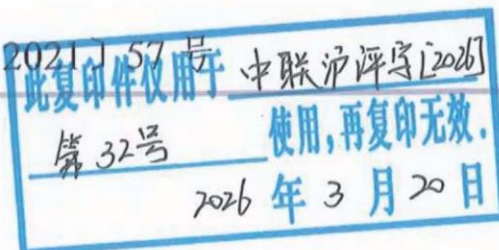 2021〕57号
此复印件仅用于 中联沪评字[2026]
第32号 使用,再复印无效.
2026 年 3 月 20 日